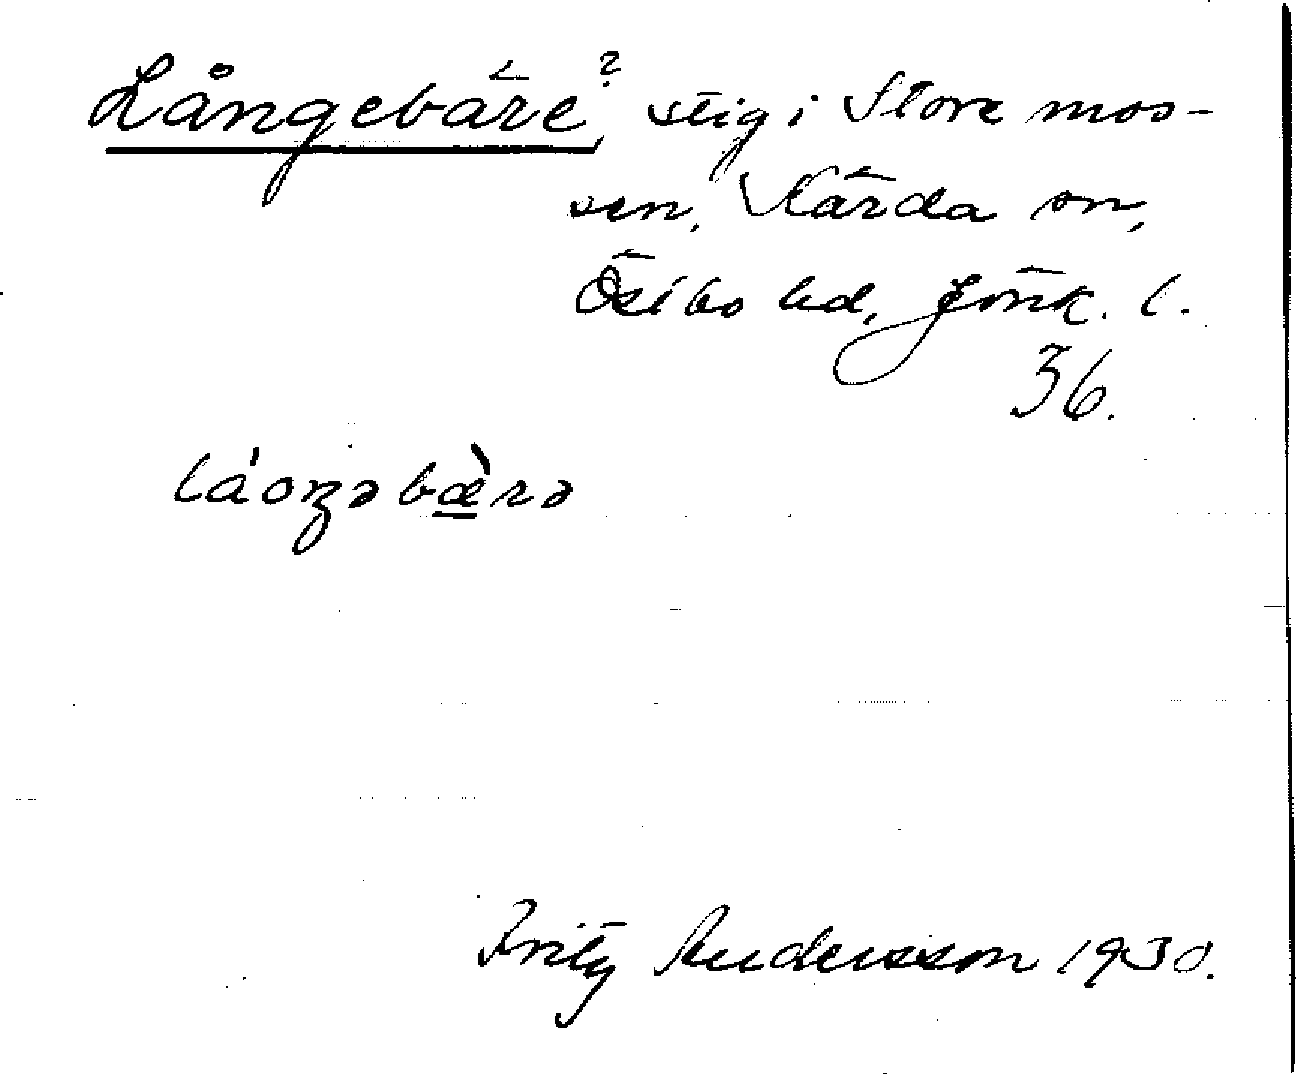 Långebäre?, stig i Store mos-
sen, Kärda sn,
Östbo hd, Jönk. l.
36.
láoŋəbæ̀rə
Fritz Andersson 1930.